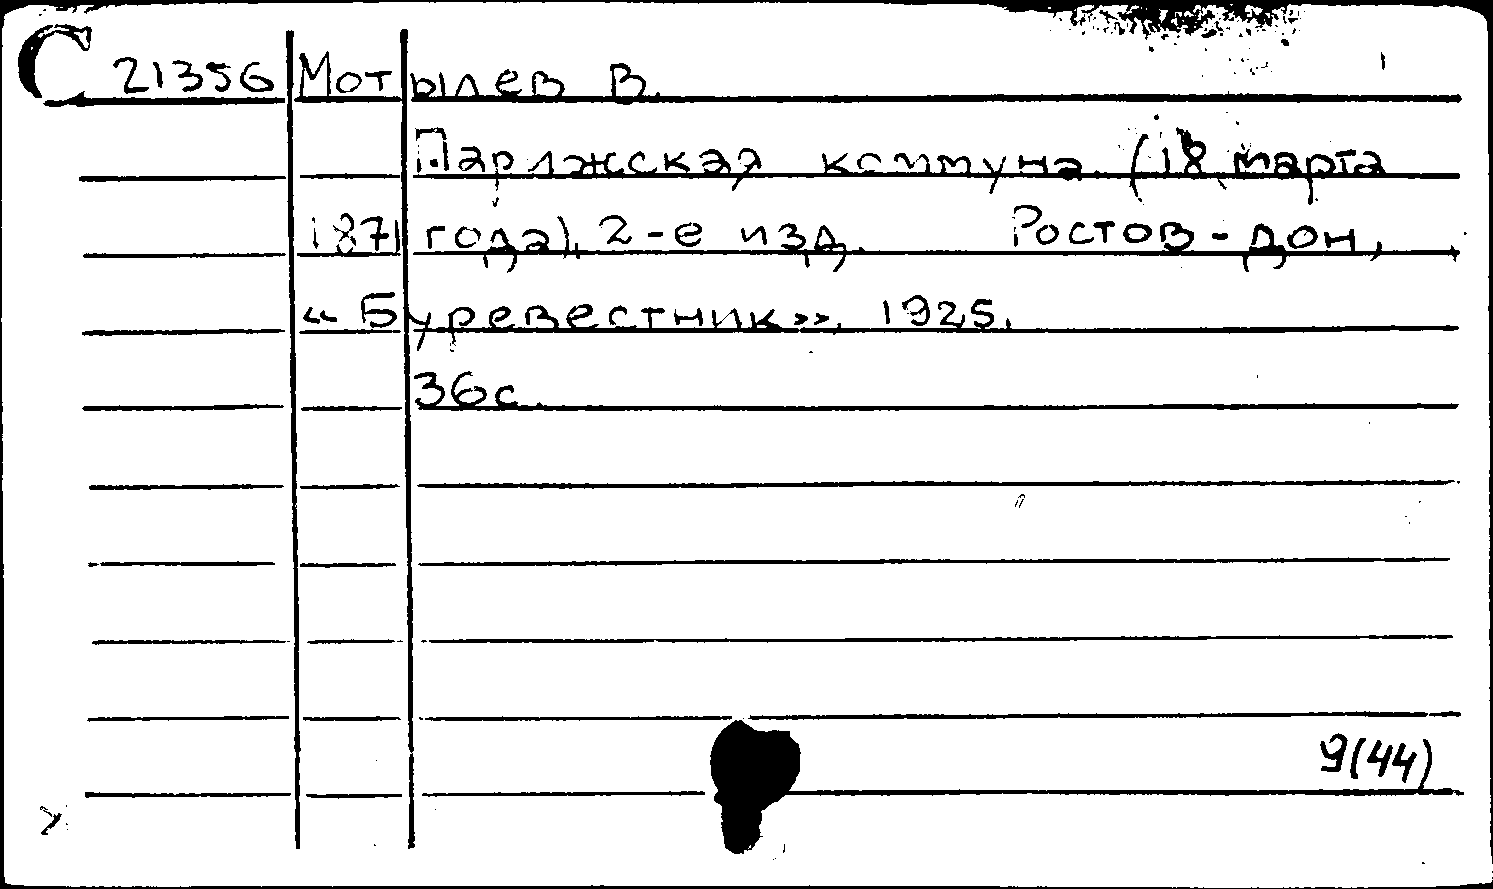 С 21356 Мотылев В.
Парижская коммуна (18 марта
1871 года), 2-е изд. Ростов-Дон,
«Буревестник», 1925.
36с.
9(44)